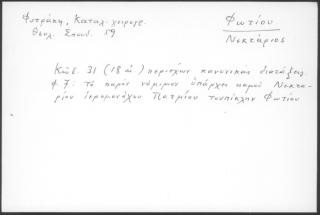 Φυτράκη, Καταλ. χειρογρ.
Θεολ. Σπουδ. 59
Φωτίου
Νεκτάριος
Κώδ. 31 (18 αἰ) περιέχων κανονικὰς διατάξεις
φ. 7: τὸ παρὸν νόμιμον ὑπάρχει καμοῦ Νεκτα-
ρίου ἱερομονάχου Πατμίου τοὐπίκλην Φωτίου